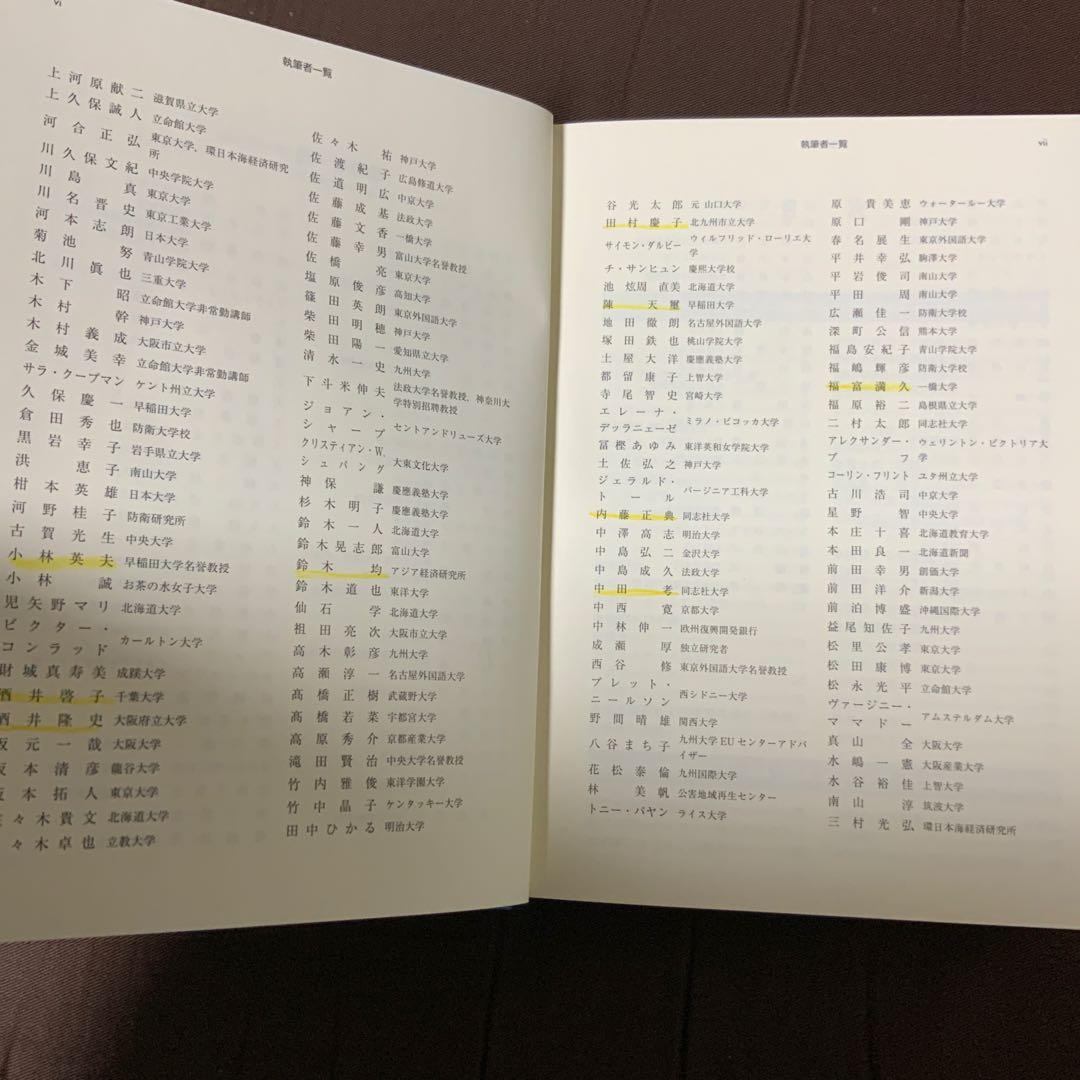 vi
執筆者一覧
上河原献二 滋賀県立大学
上久保誠人 立命館大学
河合正弘 東京大学，環日本海経済研究所
川久保文紀 中央学院大学
川島真 東京大学
川名晋史 東京工業大学
河本志朗 日本大学
菊池努 青山学院大学
北川眞也 三重大学
木下昭 立命館大学非常勤講師
木村幹 神戸大学
木村義成 大阪市立大学
金城美幸 立命館大学非常勤講師
サラ・クープマン ケント州立大学
久保慶一 早稲田大学
倉田秀也 防衛大学校
黒岩幸子 岩手県立大学
洪恵子 南山大学
柑本英雄 日本大学
河野桂子 防衛研究所
古賀光生 中央大学
小林英夫 早稲田大学名誉教授
小林誠 お茶の水女子大学
児矢野マリ 北海道大学
ビクター・
コンラッド カールトン大学
財城真寿美 成蹊大学
酒井啓子 千葉大学
酒井隆史 大阪府立大学
坂元一哉 大阪大学
坂本清彦 龍谷大学
坂本拓人 東京大学
々木貴文 北海道大学
々木卓也 立教大学
佐々木祐 神戸大学
佐渡紀子 広島修道大学
佐道明広 中京大学
佐藤成基 法政大学
佐藤文香 一橋大学
佐藤幸男 富山大学名誉教授
佐橋亮 東京大学
塩原俊彦 高知大学
篠田英朗 東京外国語大学
柴田明穂 神戸大学
柴田陽一 愛知県立大学
清水一史 九州大学
下斗米伸夫 法政大学名誉教授，神奈川大学特別招聘教授
ジョアン・
シャープ セントアンドリューズ大学
クリスティアン・W.
シュパング 大東文化大学
神保謙 慶應義塾大学
杉木明子 慶應義塾大学
鈴木一人 北海道大学
鈴木晃志郎 富山大学
鈴木均 アジア経済研究所
鈴木道也 東洋大学
仙石学 北海道大学
祖田亮次 大阪市立大学
高木彰彦 九州大学
高瀬淳一 名古屋外国語大学
髙橋正樹 武蔵野大学
髙橋若菜 宇都宮大学
高原秀介 京都産業大学
滝田賢治 中央大学名誉教授
竹内雅俊 東洋学園大学
竹中晶子 ケンタッキー大学
田中ひかる 明治大学
執筆者一覧
vii
谷光太郎 元 山口大学
田村慶子 北九州市立大学
サイモン・ダルビー ウィルフリッド・ローリエ大学
チ・サンヒュン 慶熙大学校
池炫周 直美 北海道大学
陳天璽 早稲田大学
地田徹朗 名古屋外国語大学
塚田鉄也 桃山学院大学
土屋大洋 慶應義塾大学
都留康子 上智大学
寺尾智史 宮崎大学
エレーナ・
デッラニェーゼ ミラノ・ビコッカ大学
冨樫あゆみ 東洋英和女学院大学
土佐弘之 神戸大学
ジェラルド・
トール バージニア工科大学
内藤正典 同志社大学
中澤高志 明治大学
中島弘二 金沢大学
中島成久 法政大学
中田考 同志社大学
中西寛 京都大学
中林伸一 欧州復興開発銀行
成瀬厚 独立研究者
西谷修 東京外国語大学名誉教授
ブレット・
ニールソン 西シドニー大学
野間晴雄 関西大学
八谷まち子 九州大学EUセンターアドバイザー
花松泰倫 九州国際大学
林美帆 公害地域再生センター
トニー・パヤン ライス大学
原貴美恵 ウォータールー大学
原口剛 神戸大学
春名展生 東京外国語大学
平井幸弘 駒澤大学
平岩俊司 南山大学
平田周 南山大学
広瀬佳一 防衛大学校
深町公信 熊本大学
福島安紀子 青山学院大学
福嶋輝彦 防衛大学校
福富満久 一橋大学
福原裕二 島根県立大学
二村太郎 同志社大学
アレクサンダー・
ブフ ウェリントン・ビクトリア大学
コーリン・フリント ユタ州立大学
古川浩司 中京大学
星野智 中央大学
本庄十喜 北海道教育大学
本田良一 北海道新聞
前田幸男 創価大学
前田洋介 新潟大学
前泊博盛 沖縄国際大学
益尾知佐子 九州大学
松里公孝 東京大学
松田康博 東京大学
松永光平 立命館大学
ヴァージニー・
ママドー アムステルダム大学
真山全 大阪大学
水嶋一憲 大阪産業大学
水谷裕佳 上智大学
南山淳 筑波大学
三村光弘 環日本海経済研究所